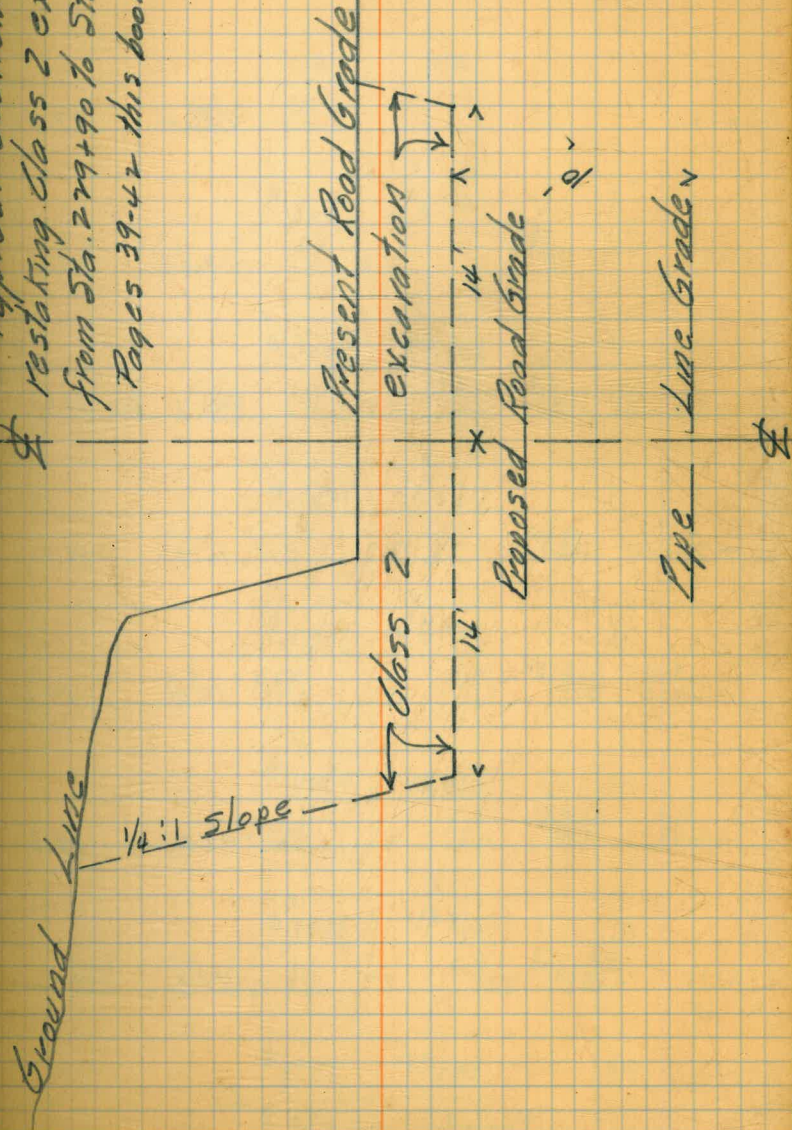 restaking Class 2
from Sta. 229+90 to
Pages 39-42 this book
℄
Ground Line
1/4:1 Slope
Present Road Grade
Class 2 excavation
14' 14'
Proposed Road Grade
Pipe Line Grade
℄